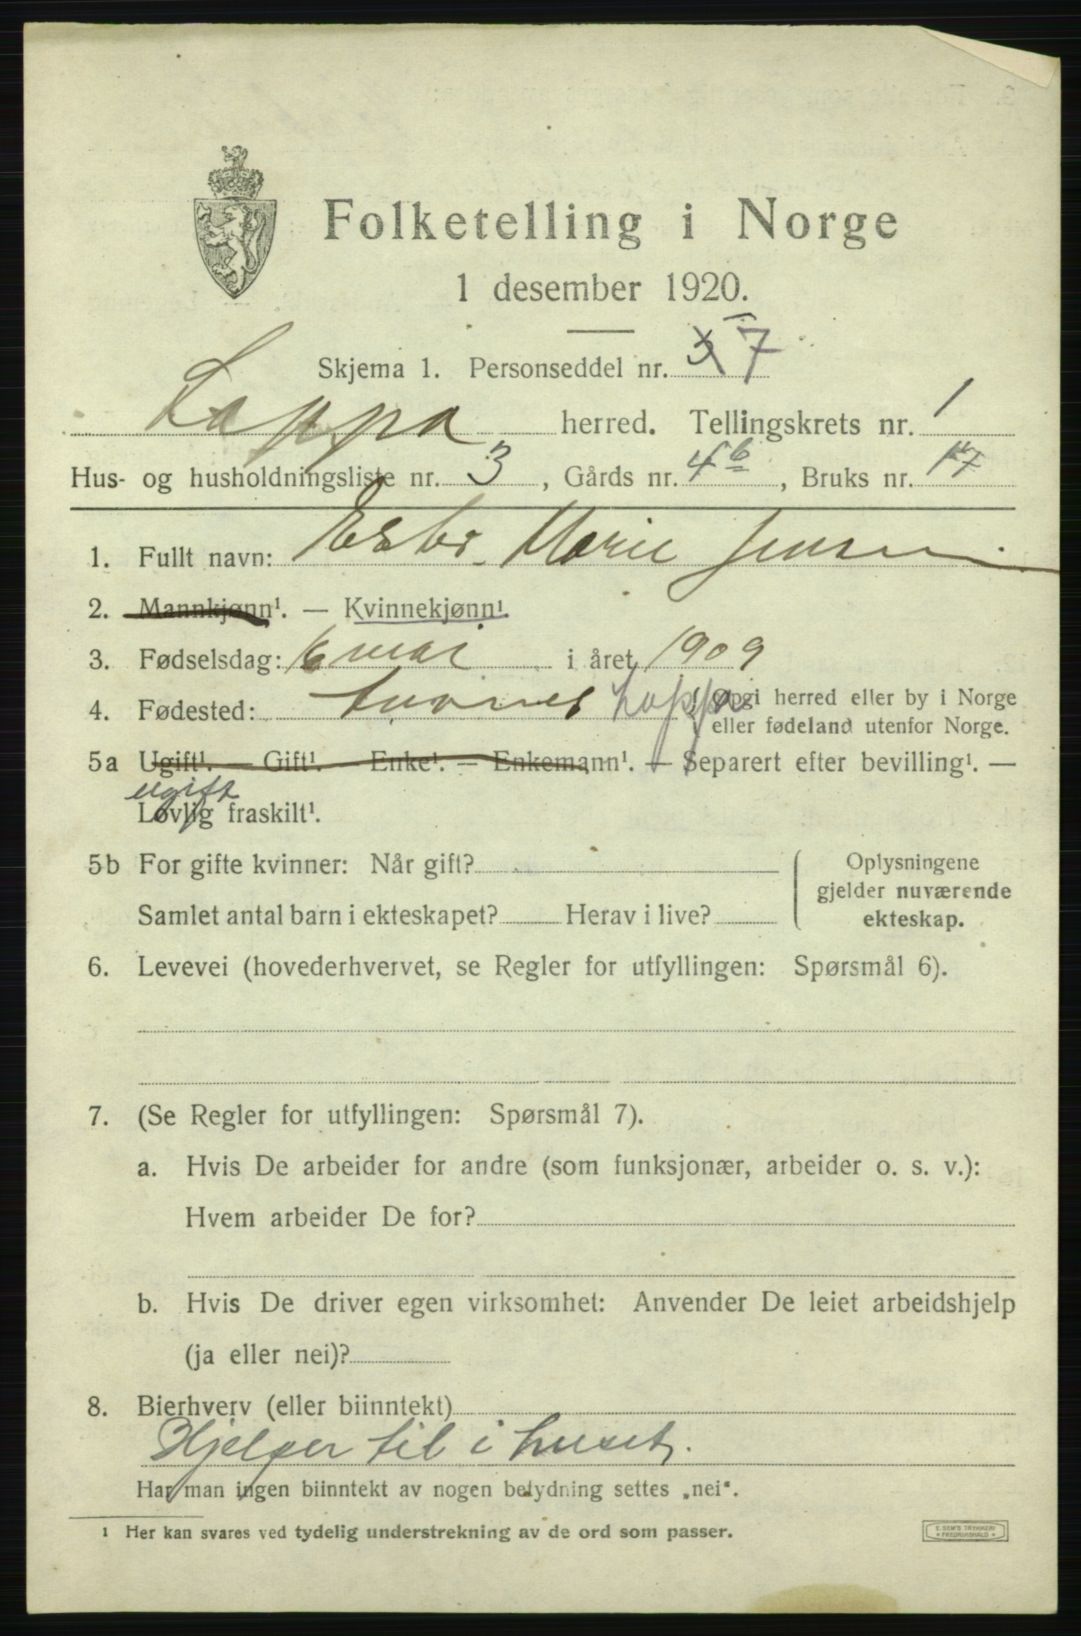 Folketelling i Norge
1 desember 1920.
Skjema 1. Personseddel nr. 7
Loppa herred. Tellingskrets nr. 1
Hus- og husholdningsliste nr. 3, Gårds nr. 4b, Bruks nr. 17
1. Fullt navn: Marie Jensen
2. Mannkjønn¹. — Kvinnekjønn¹.
3. Fødselsdag: 6 mai i året 1909
4. Fødested: Loppa (Opgi herred eller by i Norge
eller fødeland utenfor Norge.
5a Ugift¹. — Gift¹. — Enke¹. — Enkemann¹. — Separert efter bevilling¹. —
ugift
Lovlig fraskilt¹.
5b For gifte kvinner: Når gift?
Samlet antal barn i ekteskapet? Herav i live?
Oplysningene
gjelder nuværende
ekteskap.
6. Levevei (hovederhvervet, se Regler for utfyllingen: Spørsmål 6).
7. (Se Regler for utfyllingen: Spørsmål 7).
a. Hvis De arbeider for andre (som funksjonær, arbeider o. s. v.):
Hvem arbeider De for?
b. Hvis De driver egen virksomhet: Anvender De leiet arbeidshjelp
(ja eller nei)?
8. Bierhverv (eller biinntekt)
Hjelper til i huset.
Har man ingen biinntekt av nogen betydning settes „nei“.
¹ Her kan svares ved tydelig understrekning av de ord som passer.